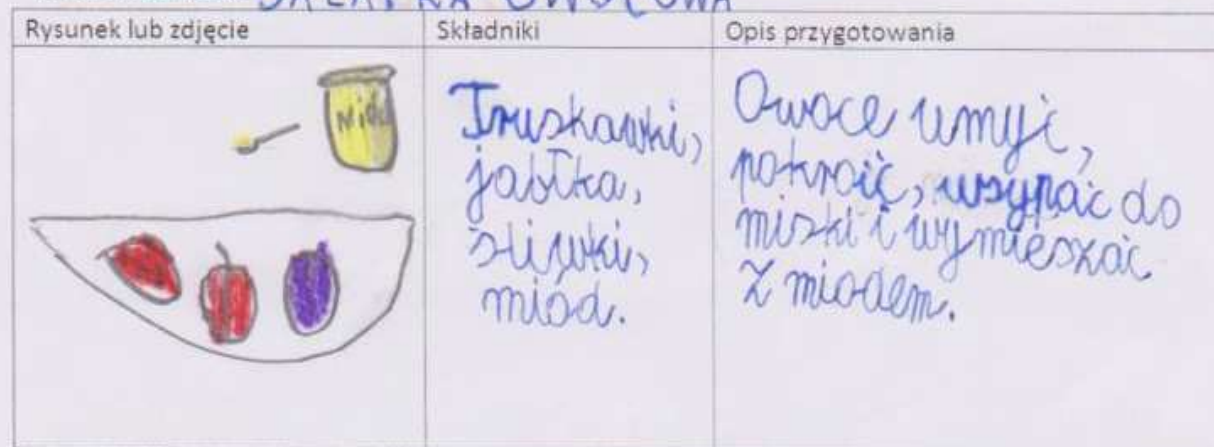 SAŁATKA OWOCOWA
Rysunek lub zdjęcie
Składniki
Opis przygotowania
Miód
Truskawki,
jabłka,
śliwki,
miód.
Owoce umyć,
pokroić, wsypać do
miski i wymieszać
z miodem.